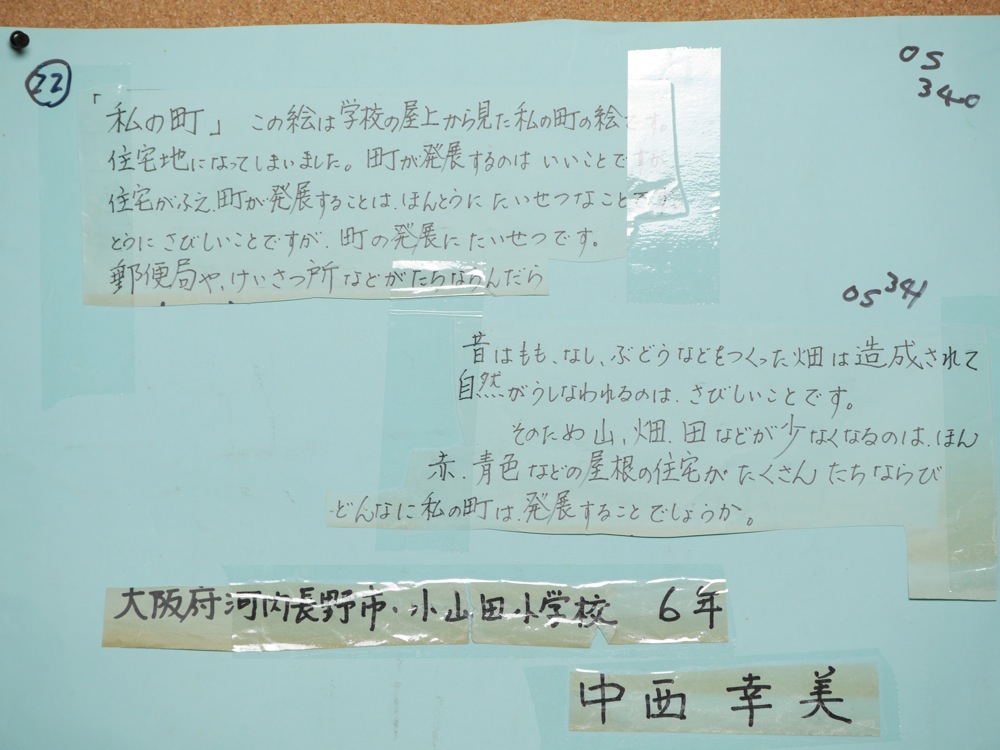 22
OS
340
「私の町」 この絵は学校の屋上から見た私の町の絵です。
住宅地になってしまいました。町が発展するのは いいことですが
住宅がふえ、町が発展することは、ほんとうに たいせつなことです
とうに さびしいことですが、町の発展に たいせつです。
郵便局や、けいさつ所などがたちならんだら
OS 341
昔はもも、なし、ぶどうなどをつくった畑は造成されて
自然がうしなわれるのは、さびしいことです。
そのため山、畑、田などが少なくなるのは、ほん
赤、青色などの屋根の住宅が たくさん たちならび
どんなに私の町は、発展することでしょうか。
大阪府河内長野市・小山田小学校 6年
中西 幸美